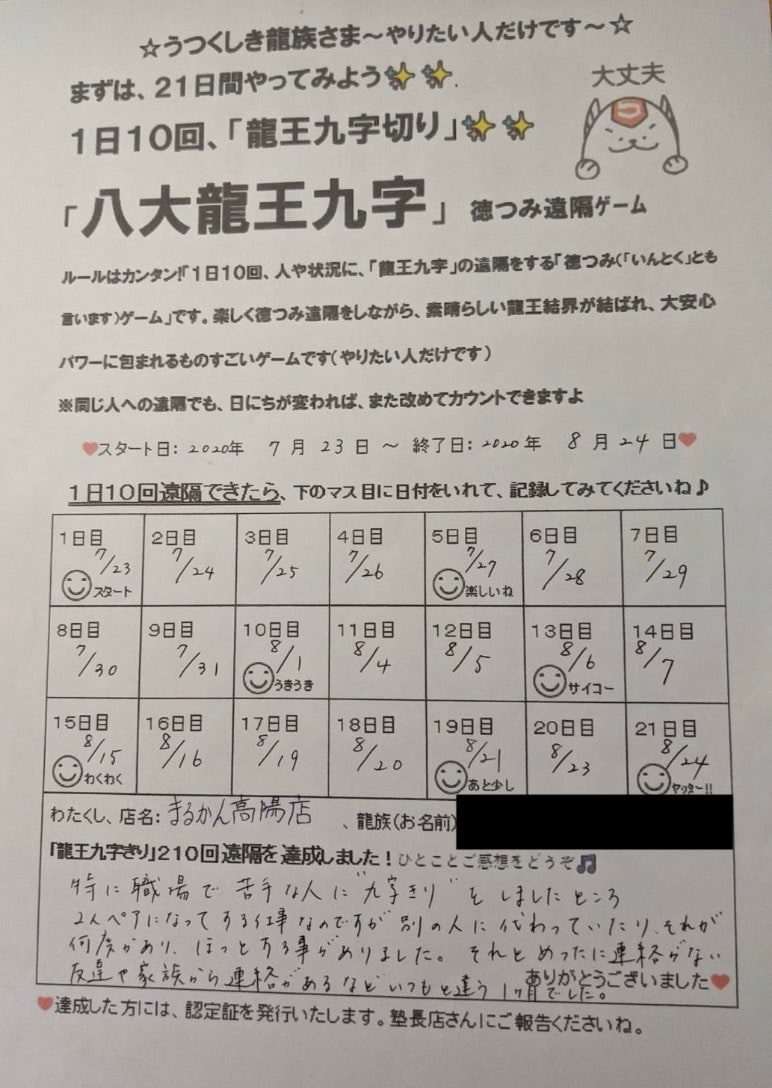 ☆うつくしき龍族さま～やりたい人だけです～☆
まずは、21日間やってみよう✨✨.
大丈夫
1日10回、「龍王九字切り」✨✨
「八大龍王九字」 徳つみ遠隔ゲーム
ルールはカンタン!「1日10回、人や状況に、「龍王九字」の遠隔をする「徳つみ(「いんとく」とも
言います)ゲーム」です。楽しく徳つみ遠隔をしながら、素晴らしい龍王結界が結ばれ、大安心
パワーに包まれるものすごいゲームです(やりたい人だけです)
※同じ人への遠隔でも、日にちが変われば、また改めてカウントできますよ
❤スタート日: 2020年 7月23日 ～ 終了日: 2020年 8月24日❤
1日10回遠隔できたら、下のマス目に日付をいれて、記録してみてくださいね♪
1日目 7/23 スタート
2日目 7/24
3日目 7/25
4日目 7/26
5日目 7/27 楽しいね
6日目 7/28
7日目 7/29
8日目 7/30
9日目 7/31
10日目 8/1 うきうき
11日目 8/4
12日目 8/5
13日目 8/6 サイコー
14日目 8/7
15日目 8/15 わくわく
16日目 8/16
17日目 8/19
18日目 8/20
19日目 8/21 あと少し
20日目 8/23
21日目 8/24 ヤッター!!
わたくし、店名: まるかん高陽店 、龍族(お名前)
「龍王九字きり」210回遠隔を達成しました!ひとことご感想をどうぞ🎵
特に職場で苦手な人に"九字きり"をしましたところ
2人ペアになってする仕事なのですが別の人に代わっていたり、それが
何度かあり、ほっとする事がありました。それとめったに連絡がない
友達や家族から連絡があるなどいつもと違う1ヶ月でした。
ありがとうございました❤
❤達成した方には、認定証を発行いたします。塾長店さんにご報告くださいね。